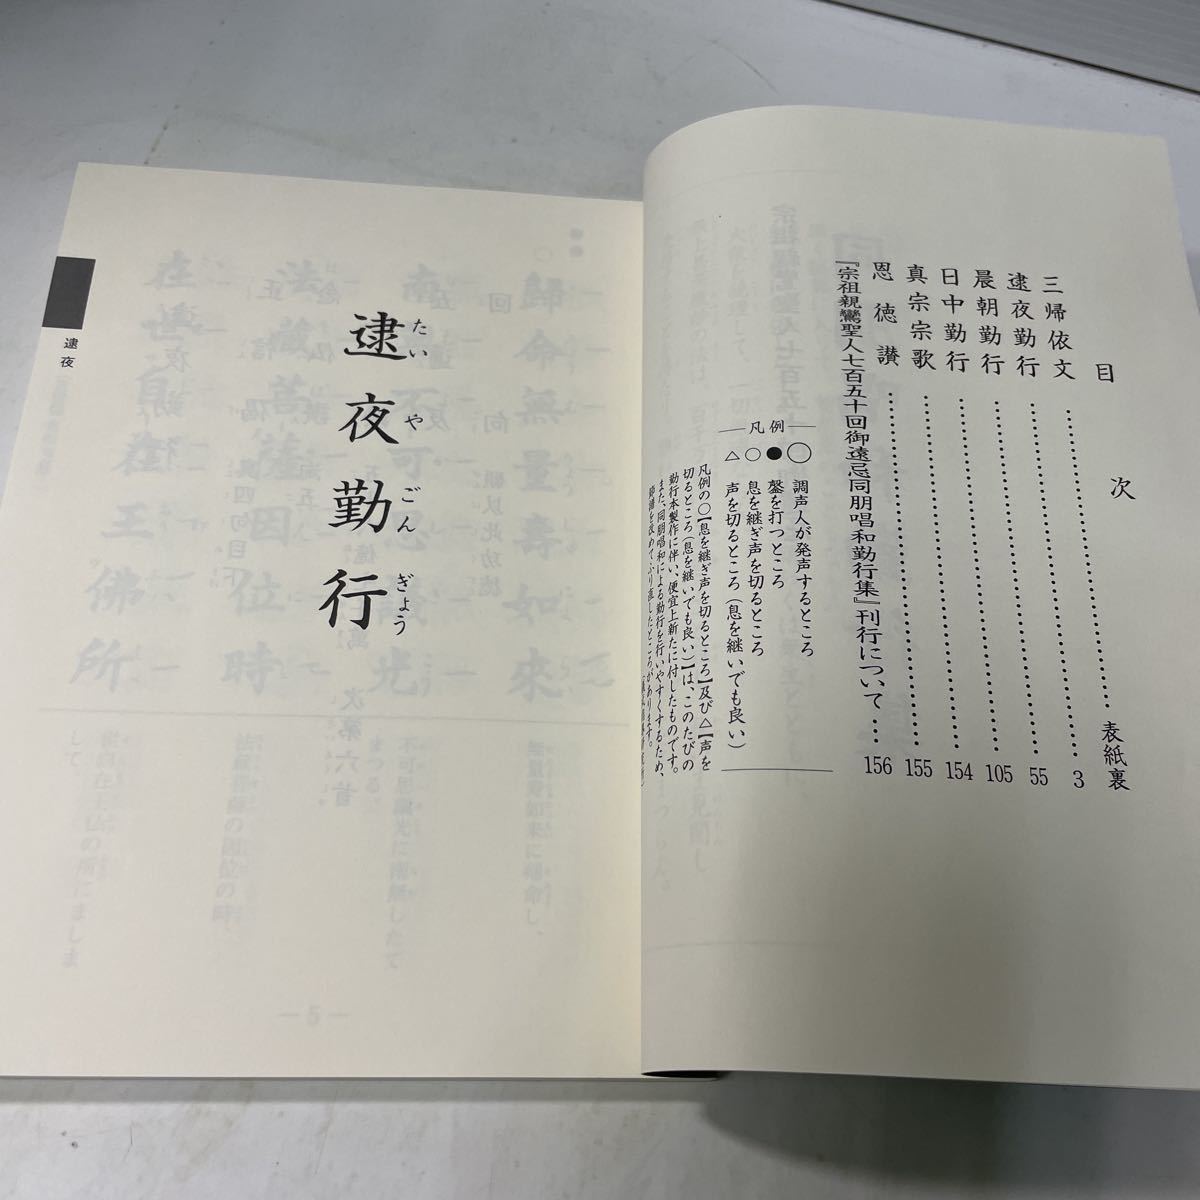 目次
三帰依文……表紙裏
逮夜勤行……3
晨朝勤行……55
日中勤行……105
真宗宗歌……154
恩徳讃……155
『宗祖親鸞聖人七百五十回御遠忌同朋唱和勤行集』刊行について……156
凡例
○ 調声人が発声するところ
● 鏧を打つところ
○ 息を継ぎ声を切るところ
△ 声を切るところ（息を継いでも良い）
凡例の○【息を継ぎ声を切るところ】及び△【声を
切るところ（息を継いでも良い）】は、このたびの
勤行本製作に伴い、便宜上新たに付したものです。
また、同朋唱和による勤行を行いやすくするため、
節譜を改めてふり直したところがあります。
逮夜勤行
たいやごんぎょう
逮夜